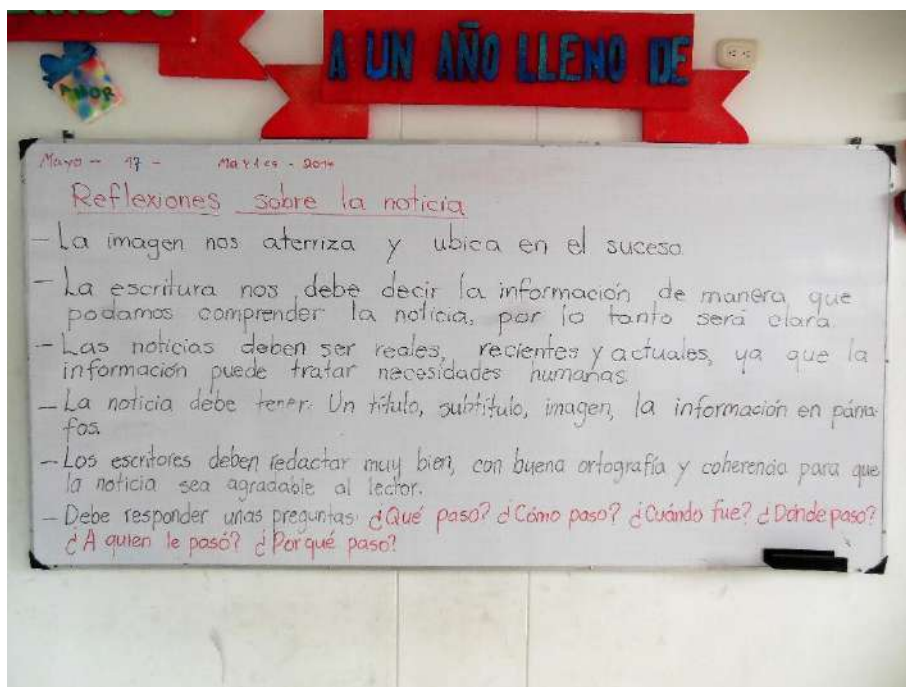 A UN AÑO LLENO DE
AMOR
Mayo - 17 - Martes - 2014
Reflexiones sobre la noticia
- La imagen nos aterriza y ubica en el suceso.
- La escritura nos debe decir la información de manera que
podamos comprender la noticia, por lo tanto será clara.
- Las noticias deben ser reales, recientes y actuales, ya que la
información puede tratar necesidades humanas.
- La noticia debe tener: Un título, subtítulo, imagen, la información en párra-
fos.
- Los escritores deben redactar muy bien, con buena ortografía y coherencia para que
la noticia sea agradable al lector.
- Debe responder unas preguntas: ¿Qué paso? ¿Cómo paso? ¿Cuándo fue? ¿Dónde paso?
¿A quien le pasó? ¿Por qué paso?